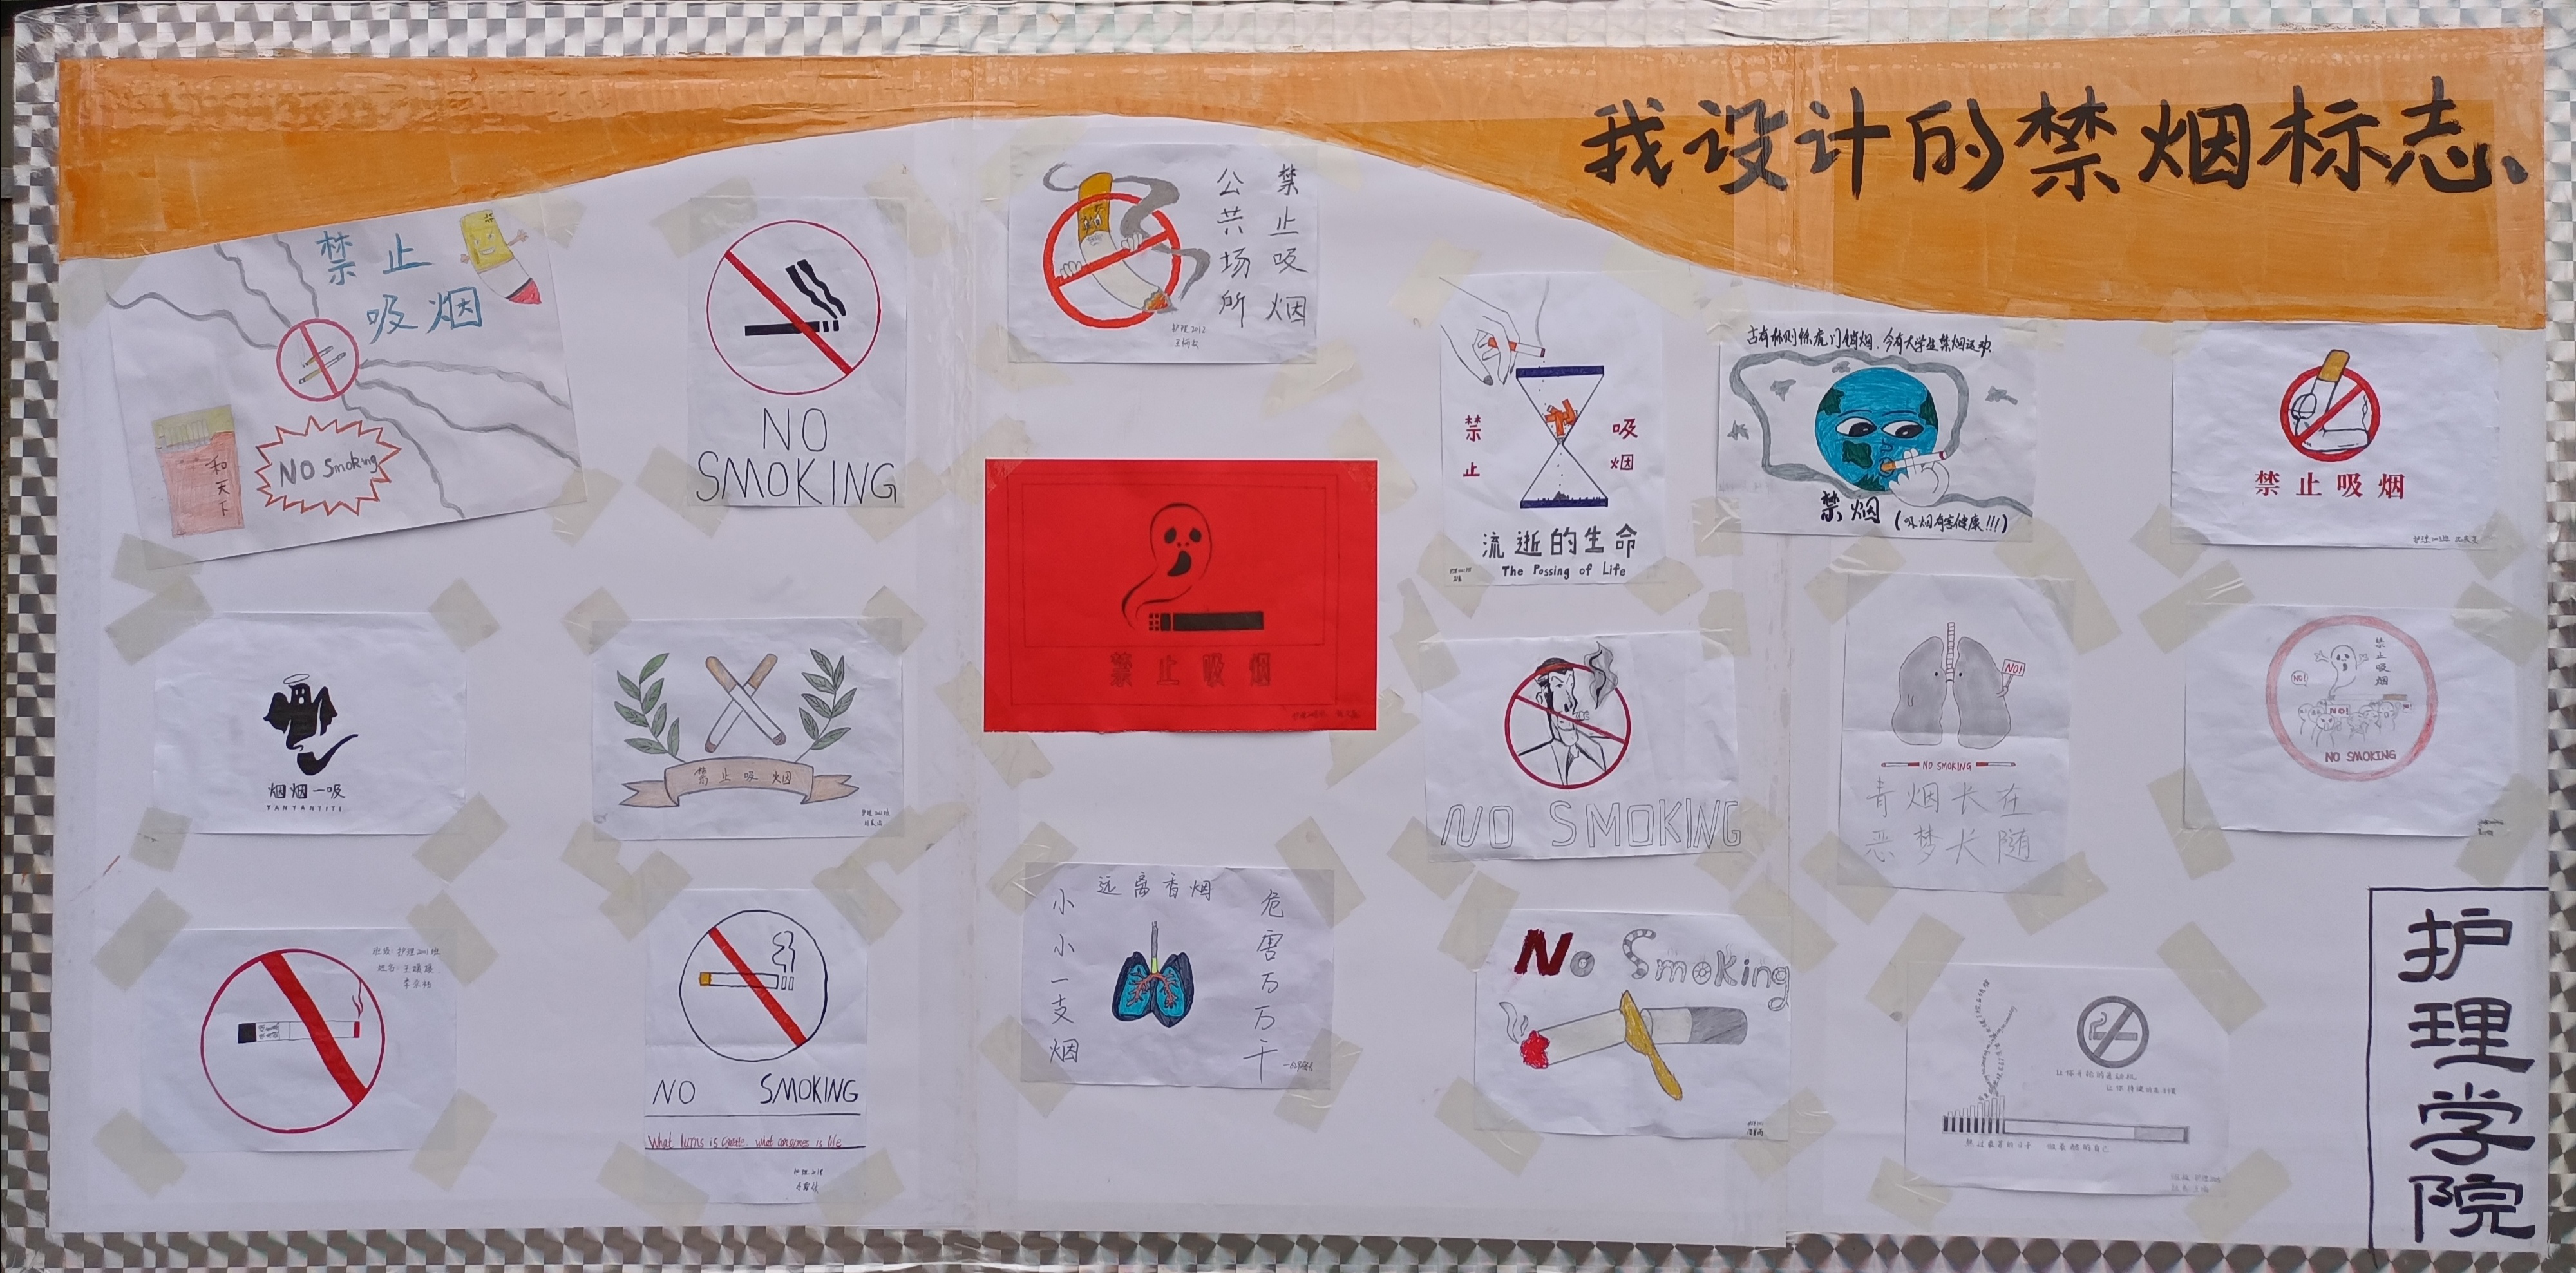 我设计的禁烟标志
禁止
吸烟
NO Smoking
和天下
NO
SMOKING
禁止吸烟
公共场所
护理2012
禁止
吸烟
流逝的生命
The Passing of Life
古有林则徐虎门销烟，今有大学生禁烟运动
禁烟
(吸烟有害健康!!!)
禁止吸烟
烟烟一吸
YANYANYITI
禁止吸烟
禁止吸烟
NO SMOKING
NO!
NO SMOKING
青烟长在
恶梦长随
禁止吸烟
NO!
NO!
NO SMOKING
班级：护理2001班
姓名：王
NO SMOKING
what consumes is life
远离香烟
小小一支烟
危害万万千
No Smoking
护理学院